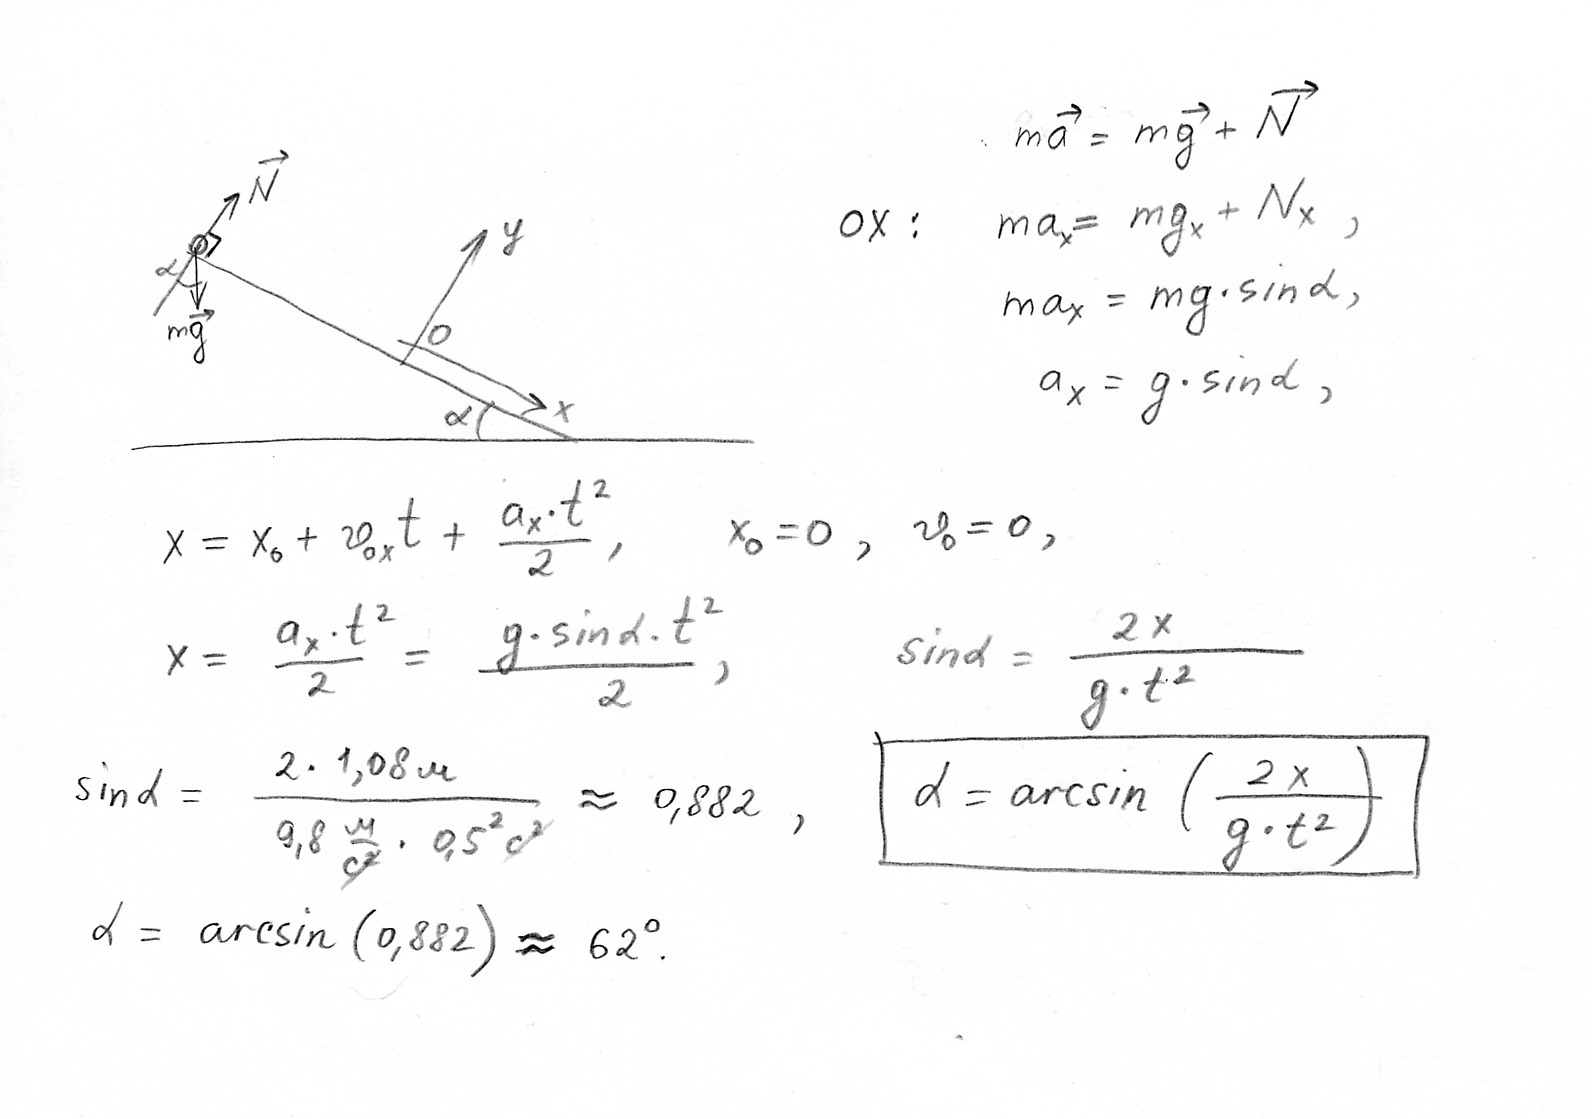 ma⃗ = mg⃗ + N⃗
N⃗
OX: maₓ = mgₓ + Nₓ,
y
α
maₓ = mg · sinα,
mg⃗
O
aₓ = g · sinα,
α x
x = x₀ + v₀ₓt + aₓ·t²/2, x₀ = 0, v₀ = 0,
x = aₓ·t²/2 = g·sinα·t²/2, sinα = 2x/g·t²
sinα = 2·1,08м/9,8 м/с² · 0,5²с² ≈ 0,882, α = arcsin (2x/g·t²)
α = arcsin (0,882) ≈ 62°.